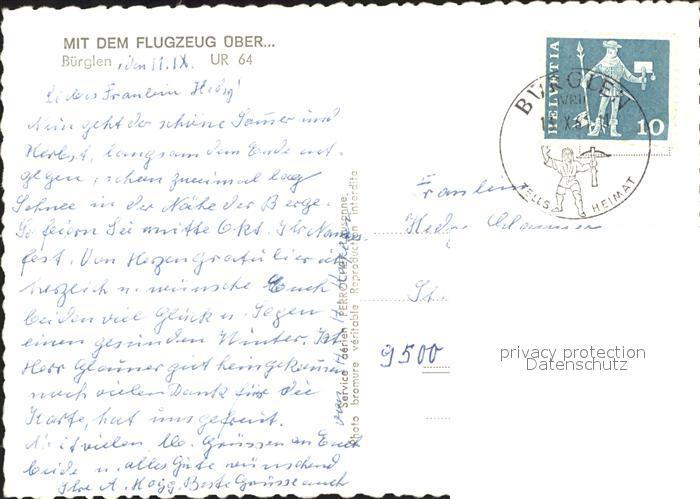 MIT DEM FLUGZEUG ÜBER...
Bürglen, den 11.IX. UR 64
Liebes Fräulein Hedy!
Nun geht der schöne Somer und
Herbst, langsam dem Ende ent-
gegen, schon zweimal lag
Schnee in der Nähe der Berge.
So feiern Sei mitte Okt. Ihr Namens-
fest. Von Herzen gratuliere ich
herzlich u. wünsche Euch
beiden viel Glück u. Segen
einen gesunden Winter. Ist
Herr gut heimgekommen
noch vielen Dank für die
Karte, hat uns gefreut.
Mit vielen lb. Grüssen an Euch
beide u. alles Gute wünschend
Ihre A. Beste Grüsse auch
Service aérien PERROCHET
Photo bromure véritable Reproduction interdite
HELVETIA
10
BÜRGLEN
URI
TELLS HEIMAT
Fräulein
Hedy
St.
9500
privacy protection
Datenschutz